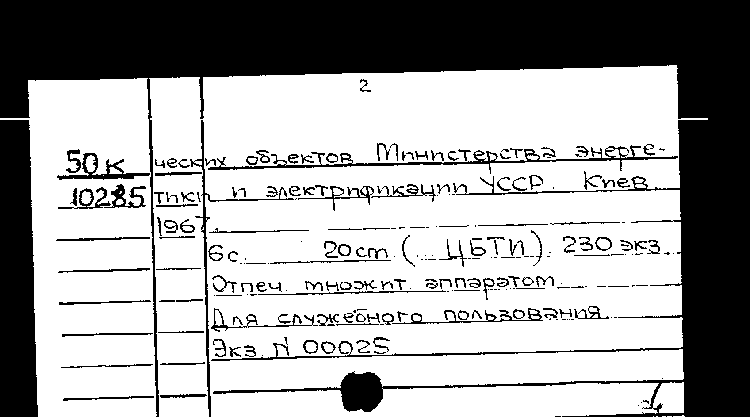 2
50к ческих объектов Министерства энерге-
10285 тики и электрификации УССР. Киев
1967.
6с. 20cm ( ЦБТИ). 230 экз.
Отпеч. множит. аппаратом.
Для служебного пользования.
Экз. N 00025